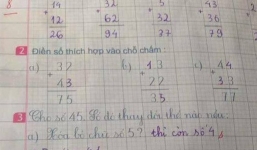 8
+ 14 + 32 + 5 + 43
12 62 32 36
26 94 37 79
2 Điền số thích hợp vào chỗ chấm:
a) 32 b) 13 c) 44
+ + +
43 22 33
75 35 77
3 Cho số 45. Số đó thay đổi thế nào nếu:
a) Xoá bỏ chữ số 5? thì còn số 4